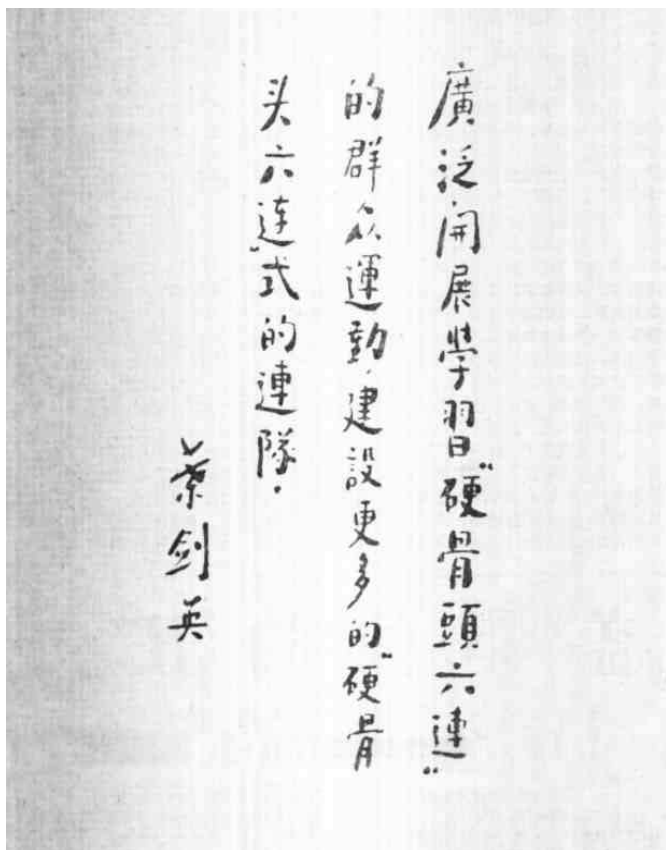 廣泛開展學習“硬骨頭六連”
的群众運動，建設更多的“硬骨
头六连”式的連隊．
葉剑英